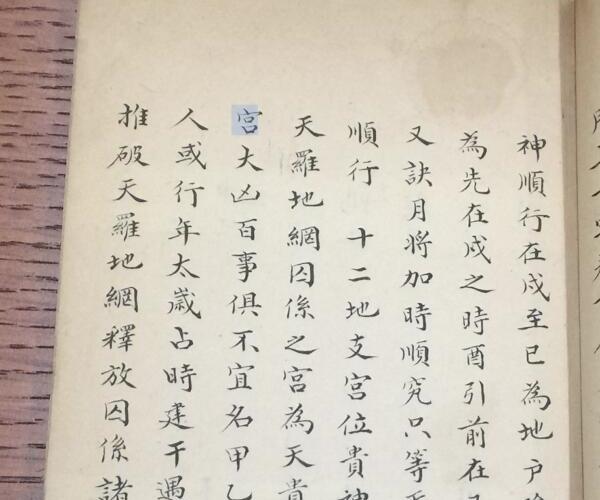 神順行在戌至巳為地戶
為先在戌之時酉引前在
又訣月將加時順究只等
順行 十二地支宮位貴神
天羅地網囚係之宮為天貴
宮大凶百事俱不宜名甲乙
人或行年太歲占時建干遇
推破天羅地網釋放囚係諸